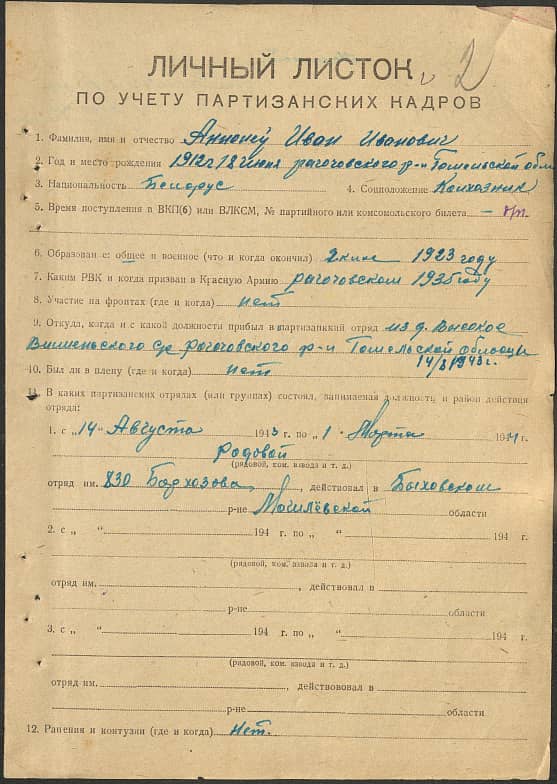 2
ЛИЧНЫЙ ЛИСТОК
ПО УЧЕТУ ПАРТИЗАНСКИХ КАДРОВ
1. Фамилия, имя и отчество Анненко Иван Иванович
2. Год и место рождения 1912 г 18 июня рагочовского р-н Гомельской обл
3. Национальность Белорус 4. Соцположение Колхозник
5. Время поступления в ВКП(б) или ВЛКСМ, № партийного или комсомольского билета — б/п
6. Образован е: общее и военное (что и когда окончил) 2 клас 1923 году
7. Каким РВК и когда призван в Красную Армию рагочовском 1935 году
8. Участие на фронтах (где и когда) нет
9. Откуда, когда и с какой должности прибыл в партизанский отряд из д. Высокое
ср рогочовского р-н Гомельской области
14/8 1943 г.
10. Был ли в плену (где и когда) нет
11. В каких партизанских отрядах (или группах) состоял, занимаемая должность и район действия
отряда:
1. с „14" Августа 1943 г. по „1" Марта 1944 г.
Радовой
(рядовой, ком. взвода и т. д.)
отряд им. 830 , действовал в Быховском
р-не Могилёвской области
2. с „ " 194 г. по „ " 194 г.
(рядовой, ком. взвода и т. д.)
отряд им. , действовал в
р-не области
3. с „ " 194 г. по „ " 194 г.
(рядовой, ком. взвода и т. д.)
отряд им. , действововал в
р-не области
12. Ранения и контузии (где и когда) нет.